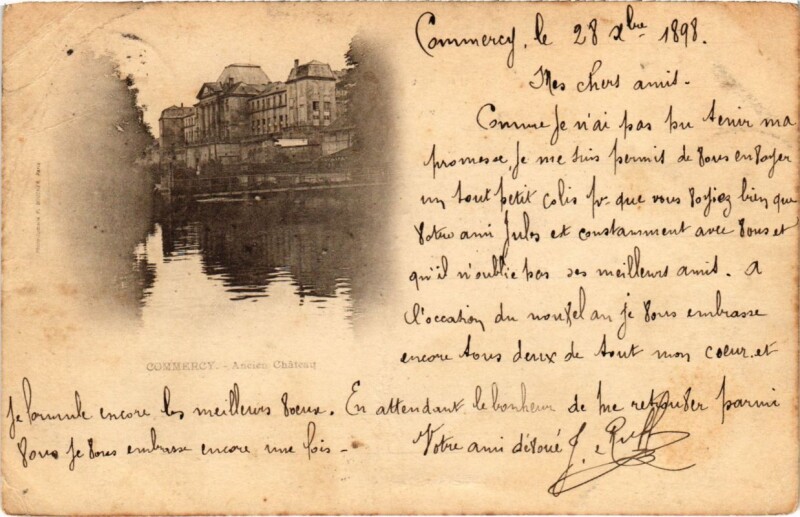 Commercy, le 28 Xbre 1898.
Mes chers amis.
Comme je n'ai pas pu tenir ma
promesse je me suis permit de vous envoyer
un tout petit colis pr que vous voyiez bien que
votre ami Jules est constamment avec vous et
qu'il n'oublie pas ses meilleurs amis. A
l'occasion du nouvel an je vous embrasse
encore tous deux de tout mon coeur et
COMMERCY. - Ancien Château
je formule encore les meilleurs voeux. En attendant le bonheur de me retrouver parmi
vous je vous embrasse encore une fois -
Votre ami dévoué J.